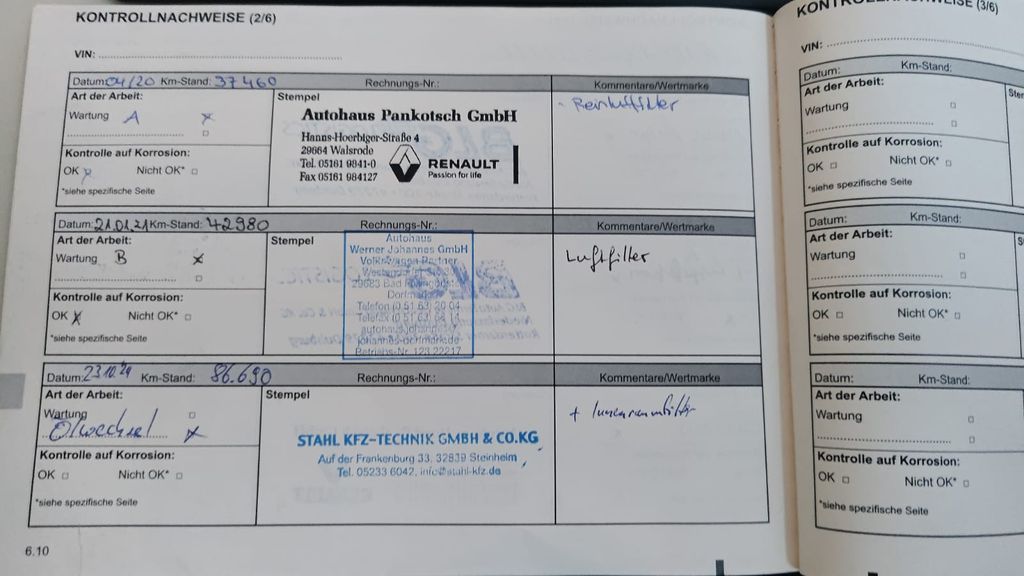 KONTROLLNACHWEISE (2/6)
VIN:
Datum: 04/20 Km-Stand: 37460 Rechnungs-Nr.: Kommentare/Wertmarke
Art der Arbeit: Stempel
Wartung A x
Autohaus Pankotsch GmbH
Hanns-Hoerbiger-Straße 4
29664 Walsrode
Tel. 05161 9841-0
Fax 05161 984127
RENAULT
Passion for life
- Reinluftfilter
Kontrolle auf Korrosion:
OK x Nicht OK*
*siehe spezifische Seite
Datum: 21.01.21 Km-Stand: 42980 Rechnungs-Nr.: Kommentare/Wertmarke
Art der Arbeit: Stempel
Wartung B x
Autohaus
Werner Johannes GmbH
Volkswagen Partner
29683 Bad
Telefon (0 51 63) 20 04
Betriebs-Nr. 123 22217
Luftfilter
Kontrolle auf Korrosion:
OK x Nicht OK*
*siehe spezifische Seite
Datum: 23.10.24 Km-Stand: 86.690 Rechnungs-Nr.: Kommentare/Wertmarke
Art der Arbeit: Stempel
Wartung
Ölwechsel x
STAHL KFZ-TECHNIK GMBH & CO.KG
Auf der Frankenburg 33, 32839 Steinheim
Tel. 05233 6042, info@stahl-kfz.de
+ Innenraumfilter
Kontrolle auf Korrosion:
OK Nicht OK*
*siehe spezifische Seite
6.10
KONTROLLNACHWEISE (3/6)
VIN:
Datum: Km-Stand:
Art der Arbeit:
Wartung
Kontrolle auf Korrosion:
OK Nicht OK*
*siehe spezifische Seite
Datum: Km-Stand:
Art der Arbeit:
Wartung
Kontrolle auf Korrosion:
OK Nicht OK*
*siehe spezifische Seite
Datum: Km-Stand:
Art der Arbeit:
Wartung
Kontrolle auf Korrosion:
OK Nicht OK*
*siehe spezifische Seite